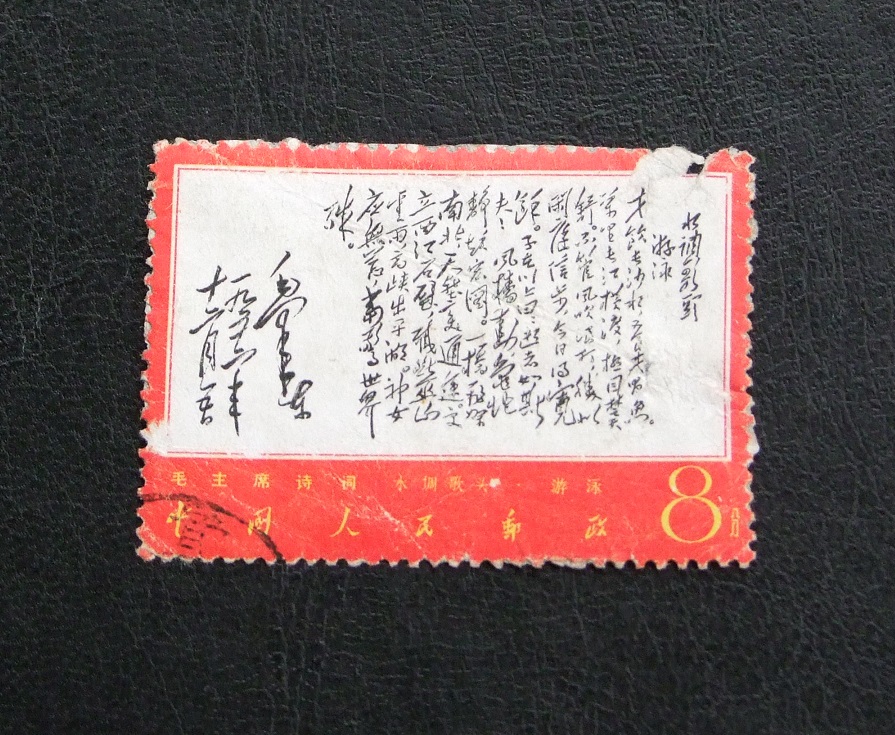 水调歌头
游泳
才饮长沙水,又食武昌鱼。
万里长江横渡,极目楚天
舒。不管风吹浪打,胜似
闲庭信步,今日得宽
馀。子在川上曰:逝者如斯
夫!风樯动,龟蛇
静,起宏图。一桥飞架
南北,天堑变通途。更
立西江石壁,截断巫山
云雨,高峡出平湖。神女
应无恙,当惊世界
殊。
毛泽东
一九五六年
十二月
毛主席诗词 水调歌头·游泳
中国人民邮政
8
八分